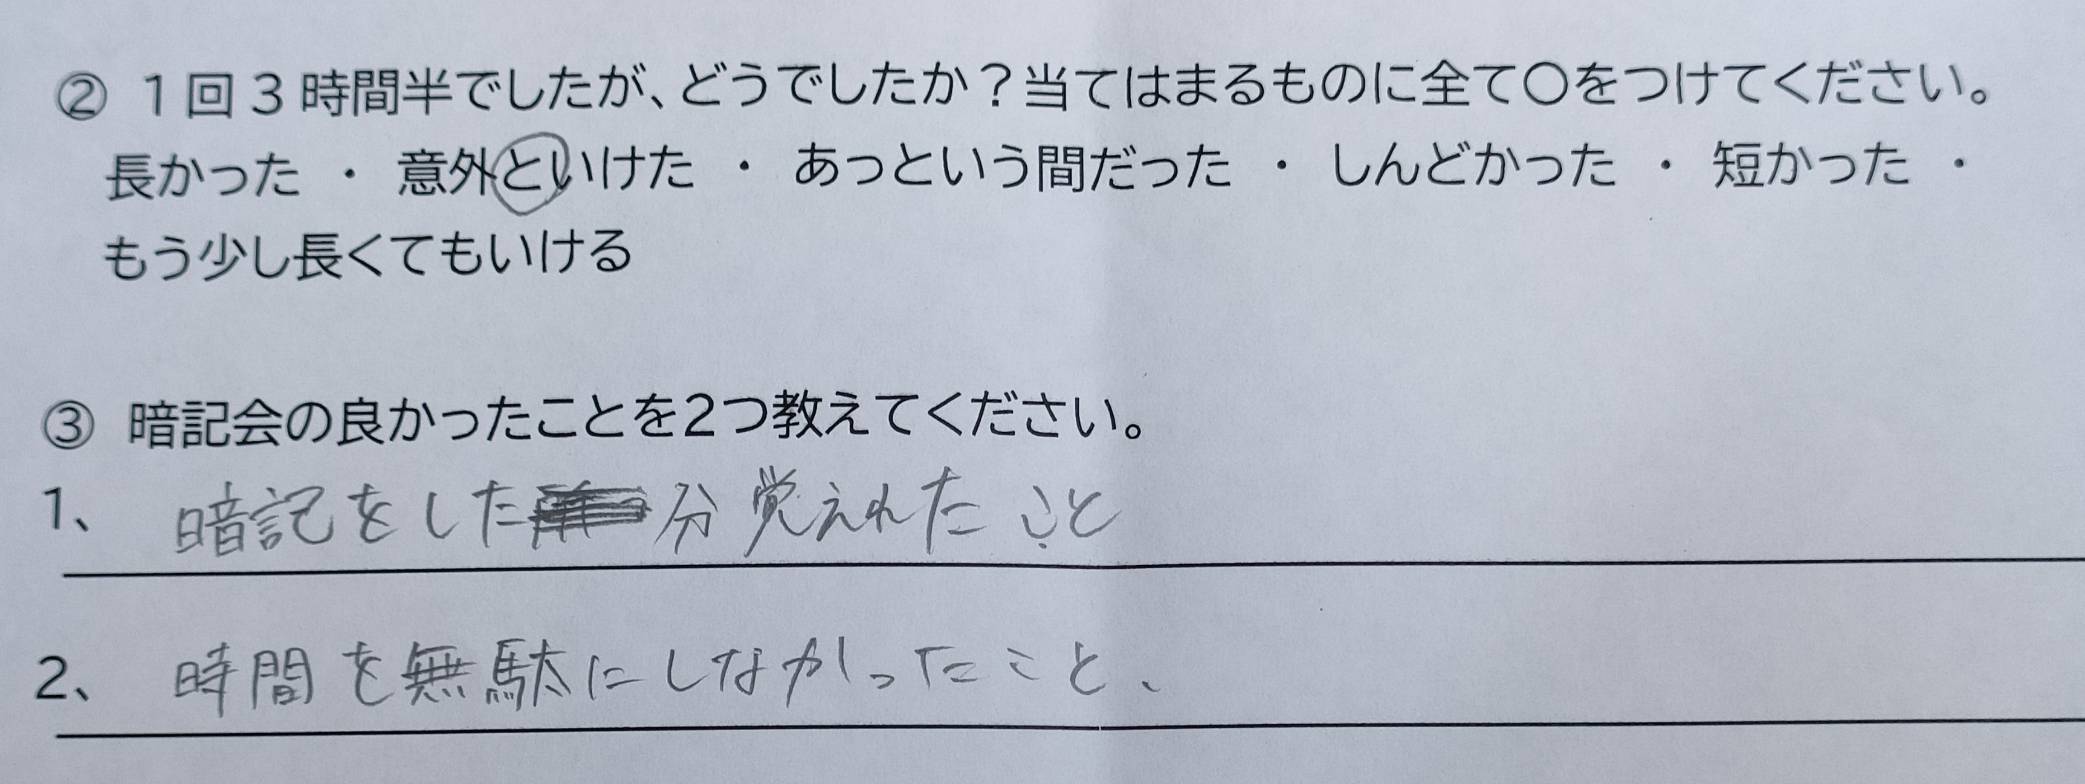 ② 1回3時間半でしたが、どうでしたか？当てはまるものに全て〇をつけてください。
長かった ・ 意外といけた ・ あっという間だった ・ しんどかった ・ 短かった ・
もう少し長くてもいける
③ 暗記会の良かったことを2つ教えてください。
1、 暗記をした分覚えれたこと
2、 時間を無駄にしなかったこと、